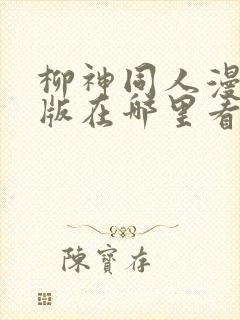 柳神同人漫
版在哪里看
陳寶存